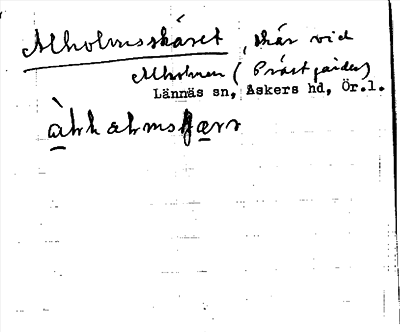 Alholmsskäret, skär vid
Alholmen (Prästgården)
Lännäs sn, Askers hd, Ör.l.